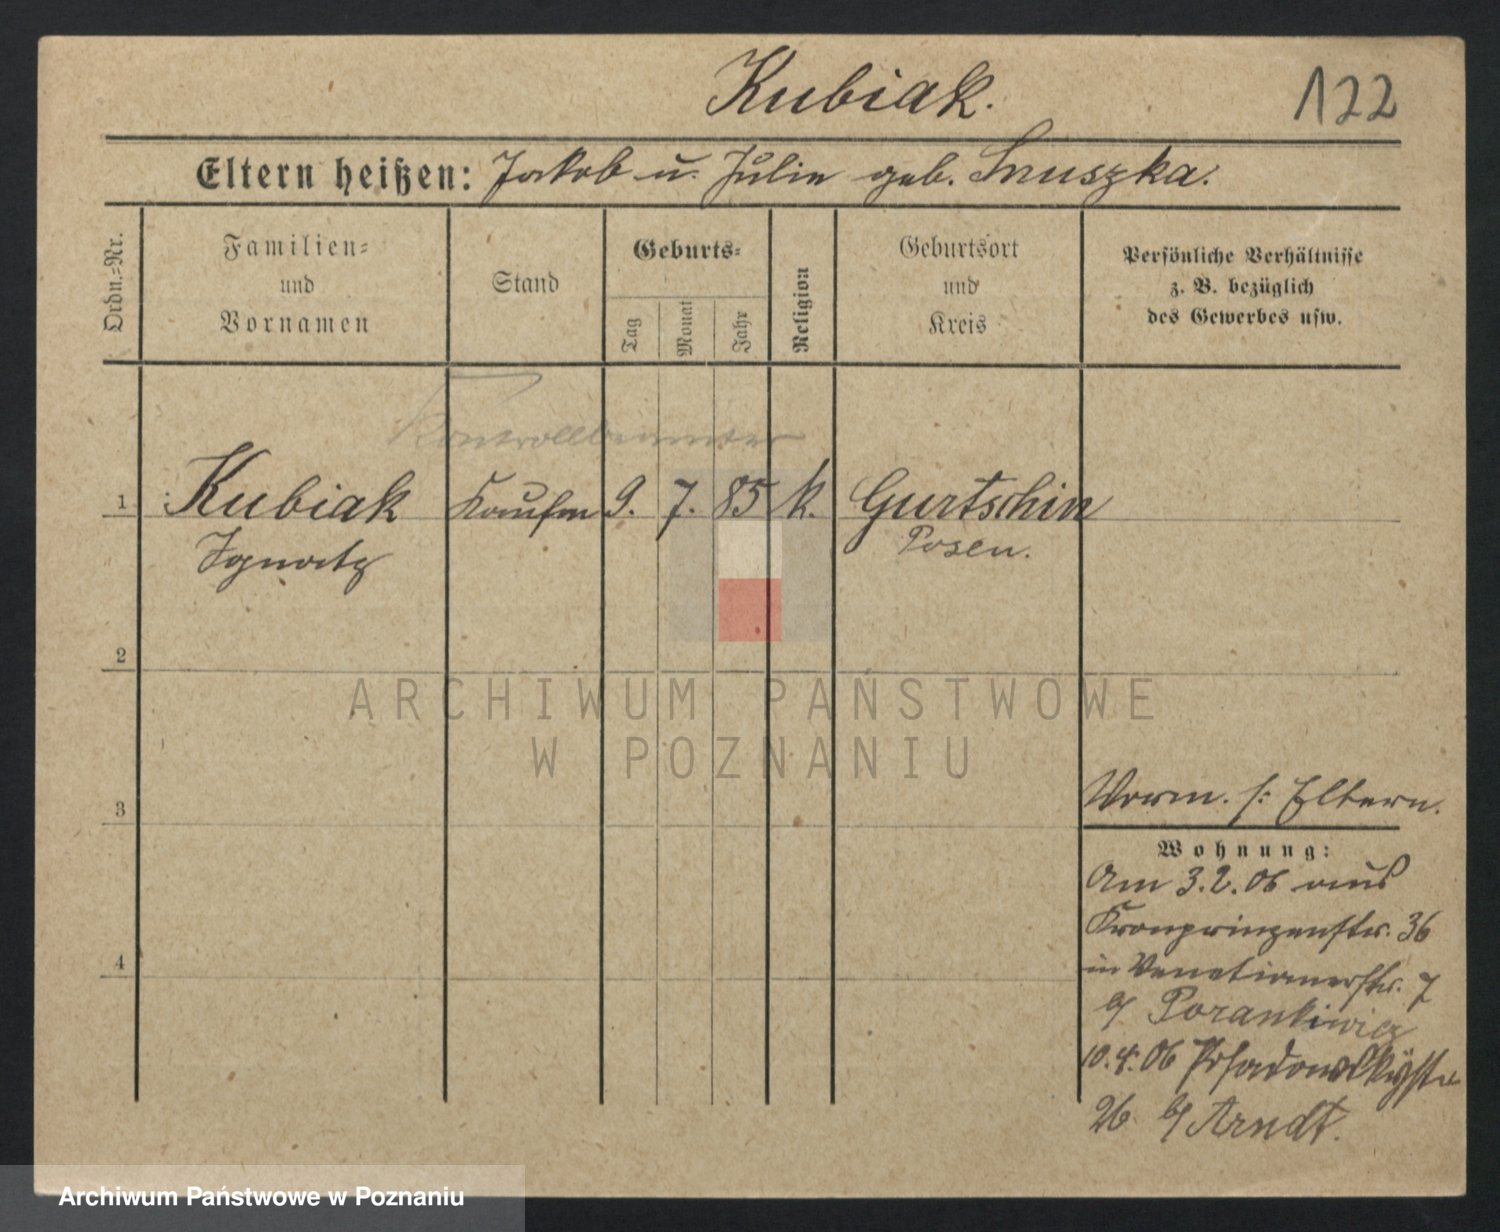 Kubiak.
122
Eltern heißen: Jakob u. Julie geb. Smuszka.
Ordn.-Nr.
Familien-
und
Vornamen
Stand
Geburts-
Tag
Monat
Jahr
Religion
Geburtsort
und
Kreis
Persönliche Verhältnisse
z. B. bezüglich
des Gewerbes usw.
Kontrollbeamter
1 Kubiak Kaufm 9. 7. 85 k. Gurtschin
Ignatz Posen.
2
ARCHIWUM PAŃSTWOWE
W POZNANIU
3
Vorm. s: Eltern.
Wohnung:
Am 3.2.06 aus
Kronprinzenstr. 36
in Venetianerstr. 7
b/ Porankiwicz
4
10.4.06 Posadowskystr
26 b/ Arndt.
Archiwum Państwowe w Poznaniu